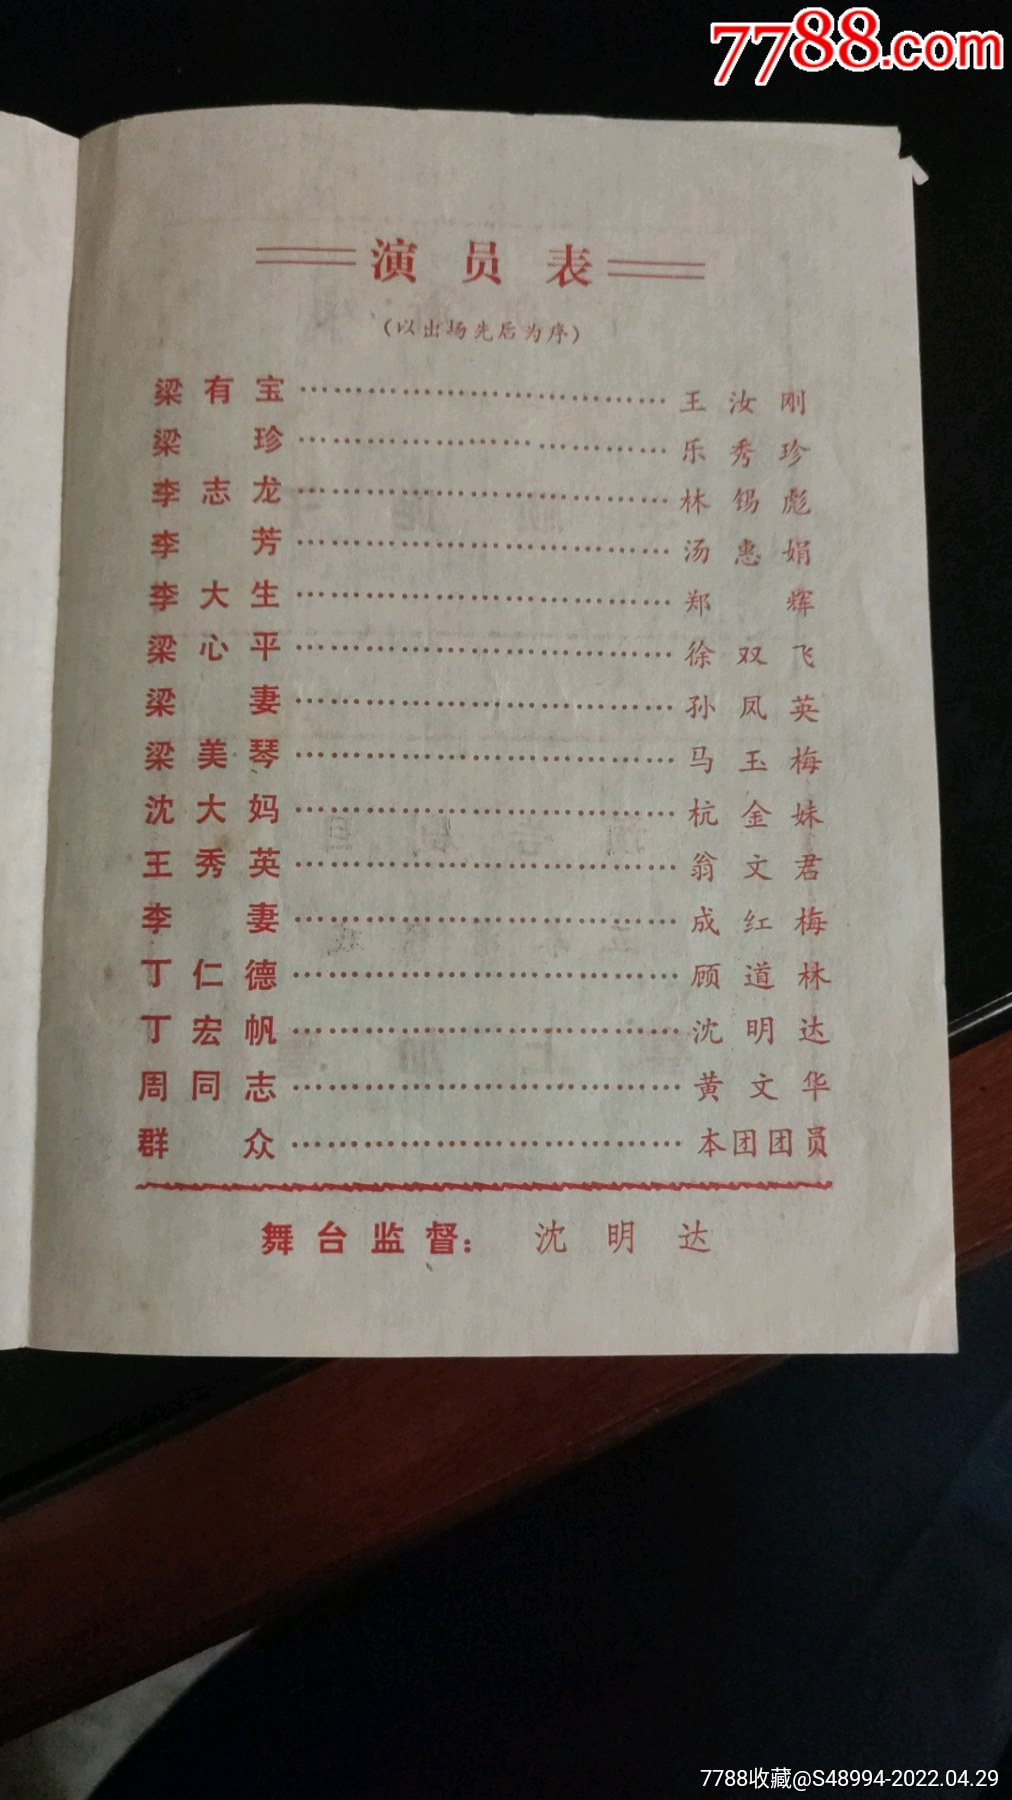 7788.com
演员表
(以出场先后为序)
梁有宝………………………………王汝刚
梁珍………………………………乐秀珍
李志龙………………………………林锡彪
李芳………………………………汤惠娟
李大生………………………………郑辉
梁心平………………………………徐双飞
梁妻………………………………孙凤英
梁美琴………………………………马玉梅
沈大妈………………………………杭金妹
王秀英………………………………翁文君
李妻………………………………成红梅
丁仁德………………………………顾道林
丁宏帆………………………………沈明达
周同志………………………………黄文华
群众………………………………本团团员
舞台监督：沈明达
7788收藏@S48994-2022.04.29